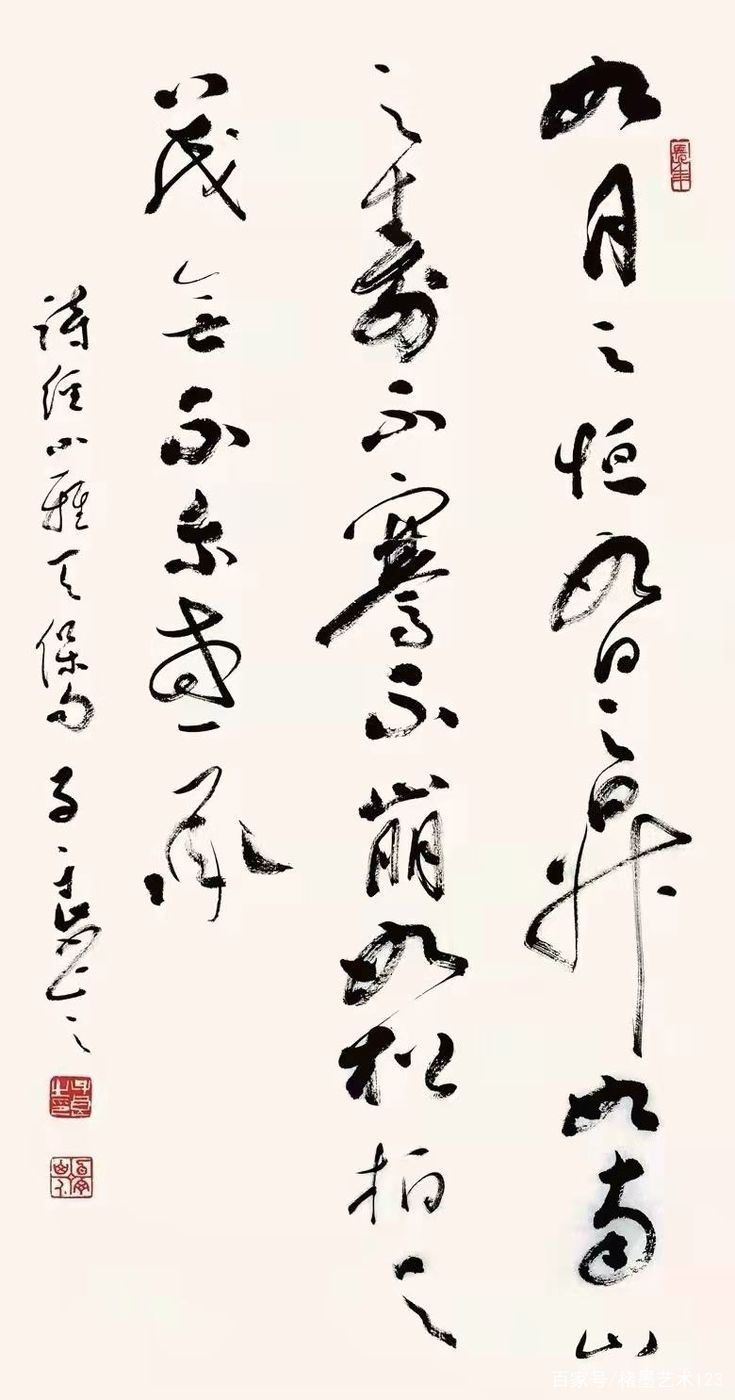 如月之恒如日之昇如南山
之壽不騫不崩如松柏之
茂無不尔或承
詩經小雅天保句
百家号/楮墨艺术123